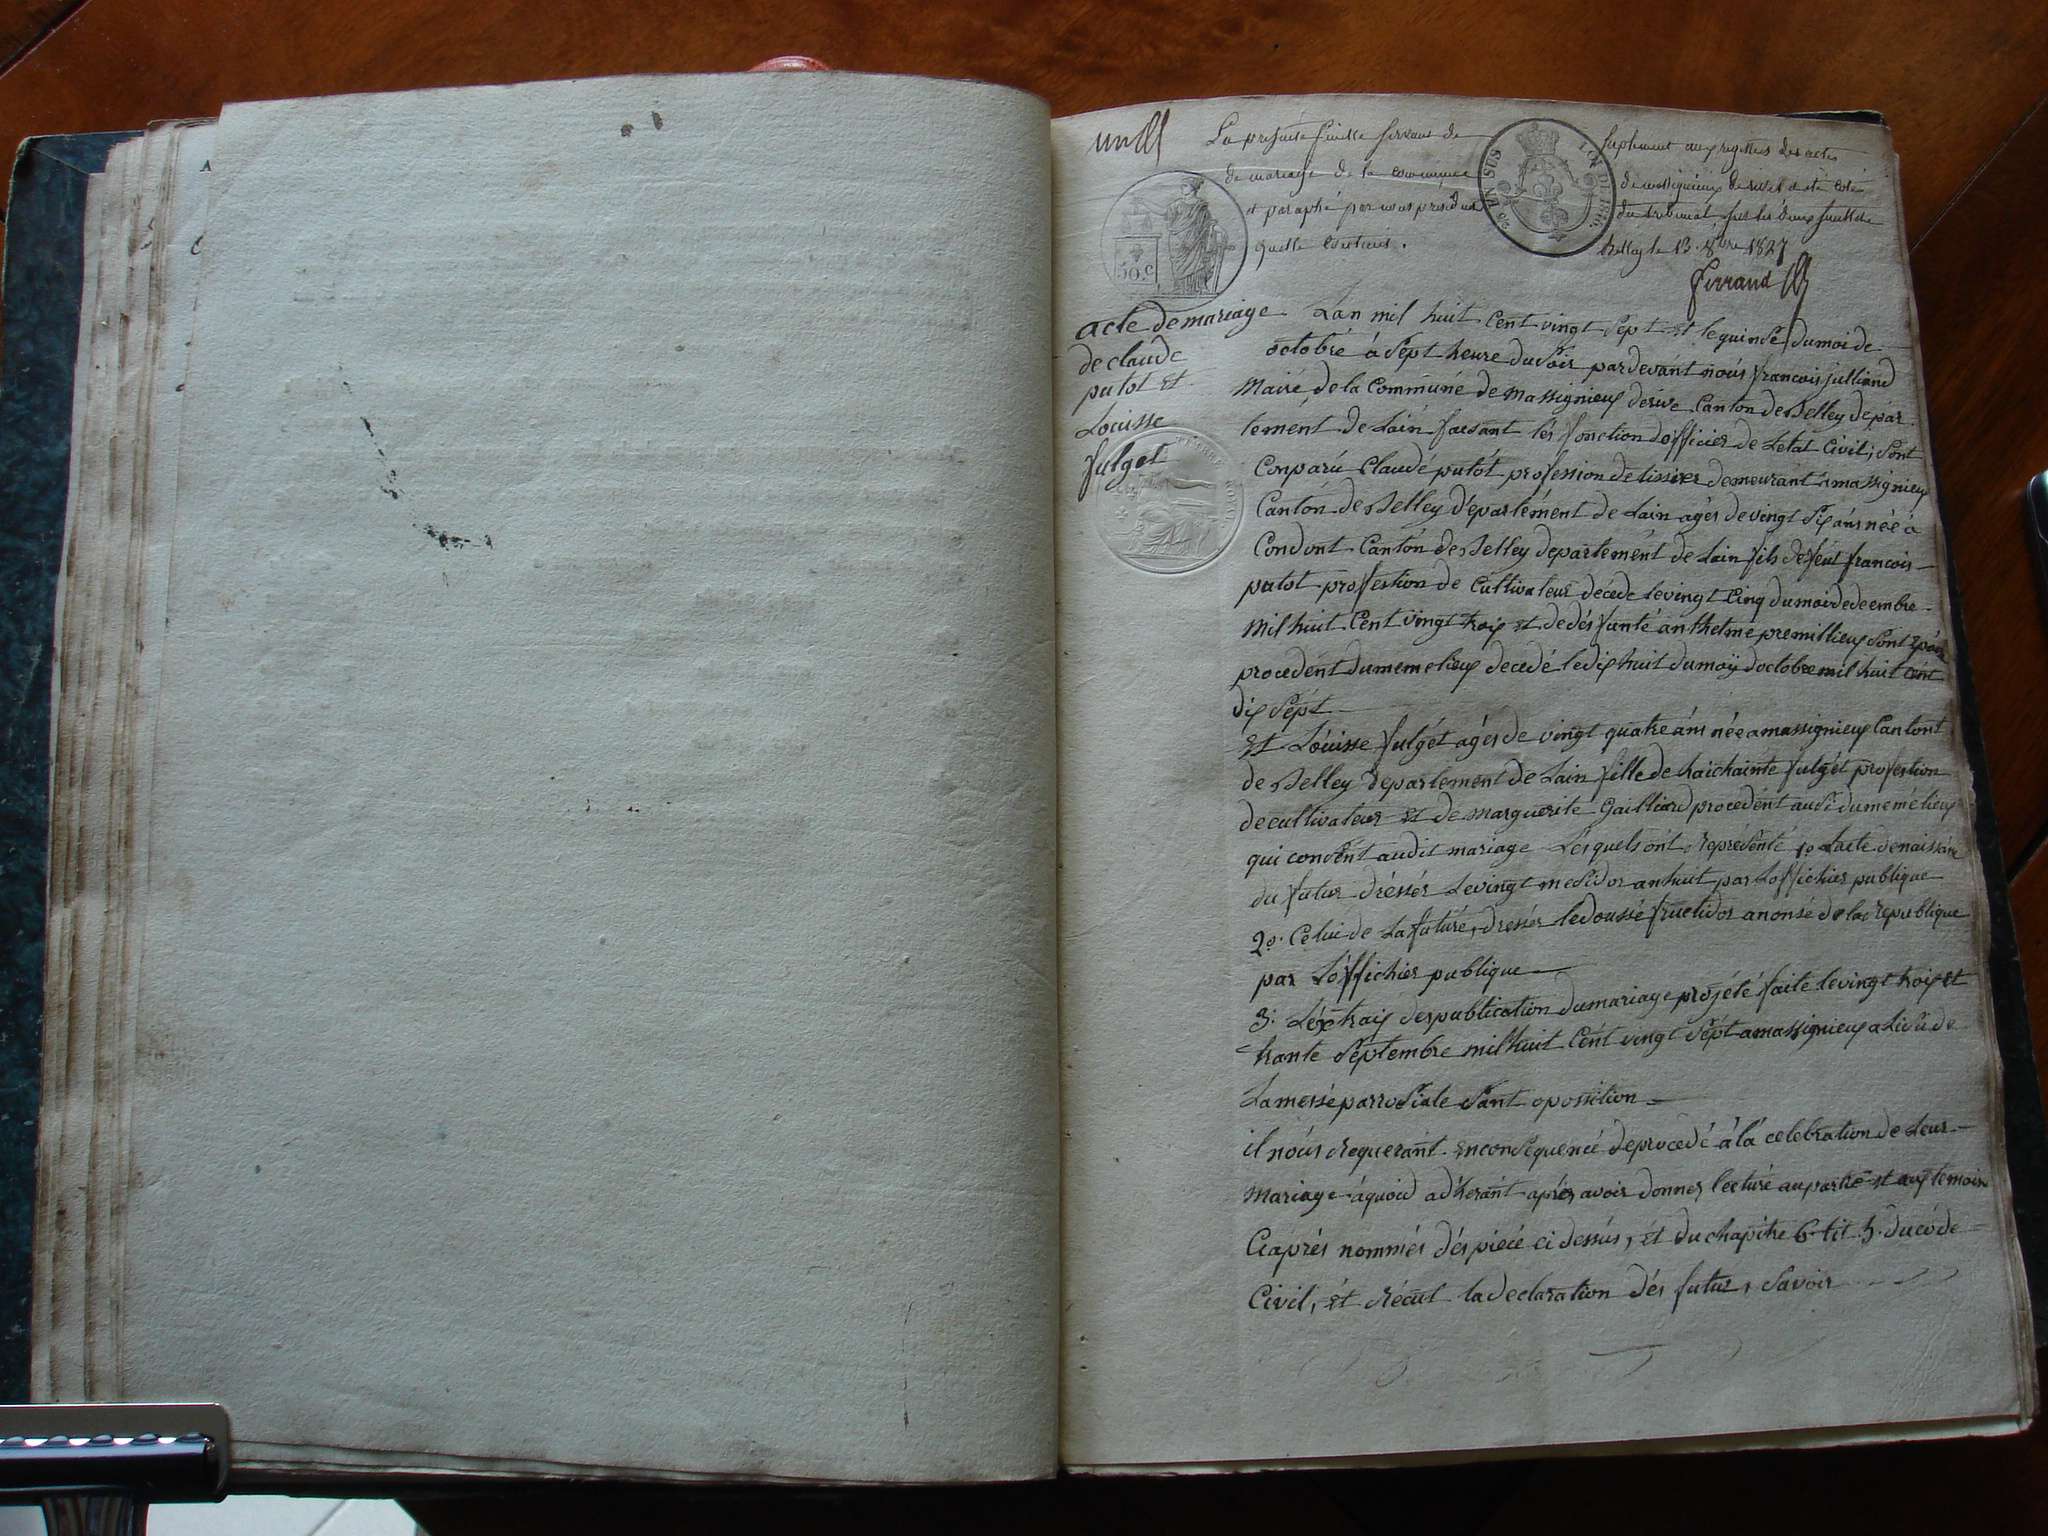 La presente feuille servant de suplement aux registres des actes
de mariage de la commune de massignieux de rives a été coté
et paraphé par nous president du tribunal
Belley le 13 8bre 1827
ferrand
50 C
EN SUS
LOI DE 1816
acte de mariage
de claude
putot Et
Louisse
fulget
Lan mil huit Cent vingt Sept Et le quinse du moi de
octobré á Sept heure du Soir par devant nóus francois julliand
Mairé de la Communé de massignieux derive Canton de Belley depar
tement de Lain faisant lés fonction dofficier de Letat Civil, Sont
Conparú Claudé putót profession de tissier demeurant a massignieux
Cantón de Belley départément de Lain agér de vingt Six áns née á
Condont Cantón de Belley departemént de Lain fils de feut francois
putot profestion de Cultivateur décéde le vingt Cinq du moi de decembre
Mil huit Cent vingt troix Et de désfunté anthelme premillieux Sont epóux
procedént du meme lieux decedé le dix huit du moÿ doctobre mil huit Cént
dix Sépt
Et Lóuisse fulgét agér de vingt quatre áns née a massignieux Cantont
de Belley département de Lain fille de haichainte fulgét profestion
de cultivateur Et de marguerite Gailliard procedént auSi du memé lieux
qui conSent audit mariage Lésquels ónt représénté 1º Lacte de naissáne
du futur dréssér Le vingt meSidor an huit par Loffichier publique
2º Celui de La futuré, dressér le doussé fructidor an onsé de la republique
par Lóffichier publique
3º Léxtraix des publication du mariage projété faite le vingt troix et
trante Séptembre mil huit Cént vingt Sépt a massignieux a LiSu de
La messé parroSiale Sant opossition
il nóus requerant En conSéquencé de procedé á lá celebration de Leur
Mariage áquoid adhérant aprér avoir donner lecturé au partié et aux temoin
Ciaprér nommér dés piécé ci dessús, Et du chapitre 6. tit. 5. du códe
Civil, Et récut la declaration dés futur, Savoir